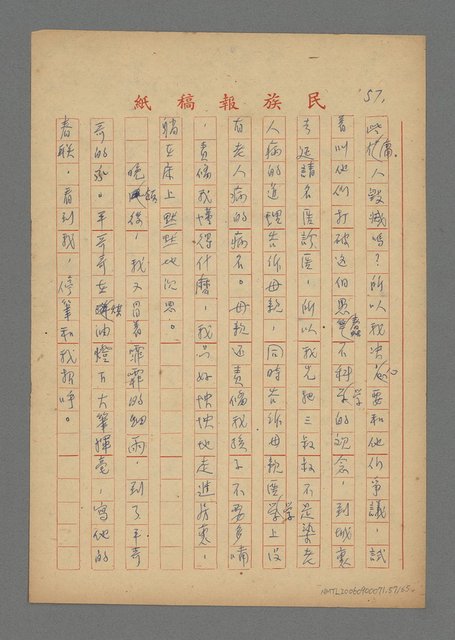 民族報稿紙
57,
些庸人毀滅嗎？所以我決心要和他們爭議，試
着叫他們打破這個愚蠢不科學的觀念，到城裏
去延請名醫診医，所以我先把三叔叔不是染老
人病的道理告訴母親，同時告訴母親医學上沒
有老人病的病名。母親还責備我孩子不要多嘴
，責備我懂得什麼，我只好怏怏地走進房裏，
躺在床上默默地沉思。
晚飯後，我又冒着霏霏的細雨，到了平哥
哥的家。平哥哥在煤油燈下大筆揮毫，寫他的
春联，看到我，停筆和我招呼。
NMTL20060900071,57/65